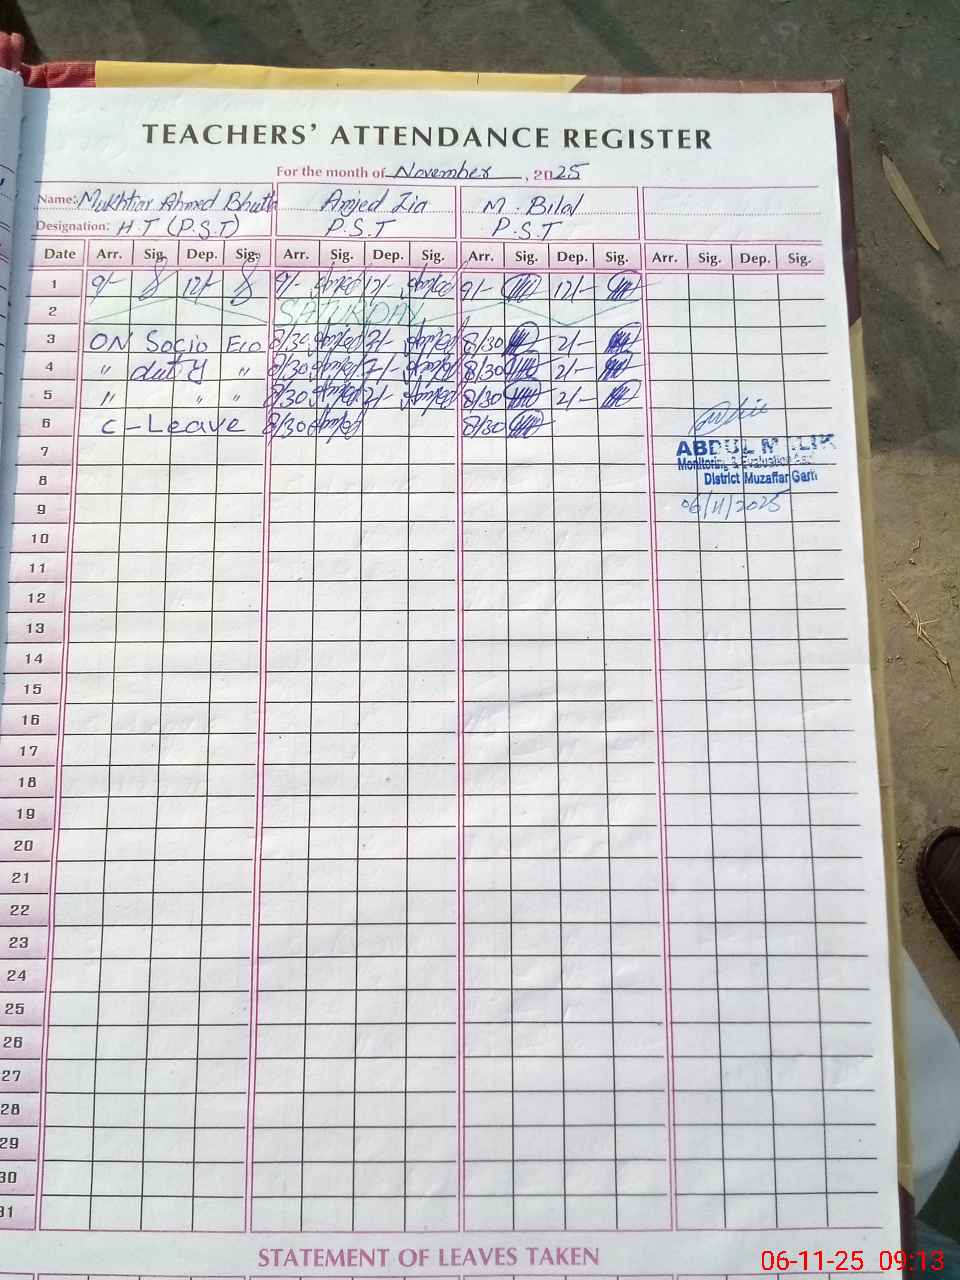 TEACHERS' ATTENDANCE REGISTER
For the month of November, 2025
Name: Mukhtiar Ahmed Bhutta Amjed Zia M. Bilal
Designation: H.T (P.S.T) P.S.T P.S.T
Date Arr. Sig. Dep. Sig. Arr. Sig. Dep. Sig. Arr. Sig. Dep. Sig. Arr. Sig. Dep. Sig.
1 9/- 12/- 9/- Amjed 12/- Amjed 9/- 12/-
2
3 ON Socio Eco 8/30 Amjed 2/- Amjed 8/30 2/-
4 " duty " 8/30 Amjed 2/- Amjed 8/30 2/-
5 " " " 8/30 Amjed 2/- Amjed 8/30 2/-
6 C-Leave 8/30 Amjed 8/30
ABDUL M
7
Monitoring & Evaluation
8 District Muzaffar Garh
9 06/11/2025
10
11
12
13
14
15
16
17
18
19
20
21
22
23
24
25
26
27
28
29
30
31
STATEMENT OF LEAVES TAKEN
06-11-25 09:13